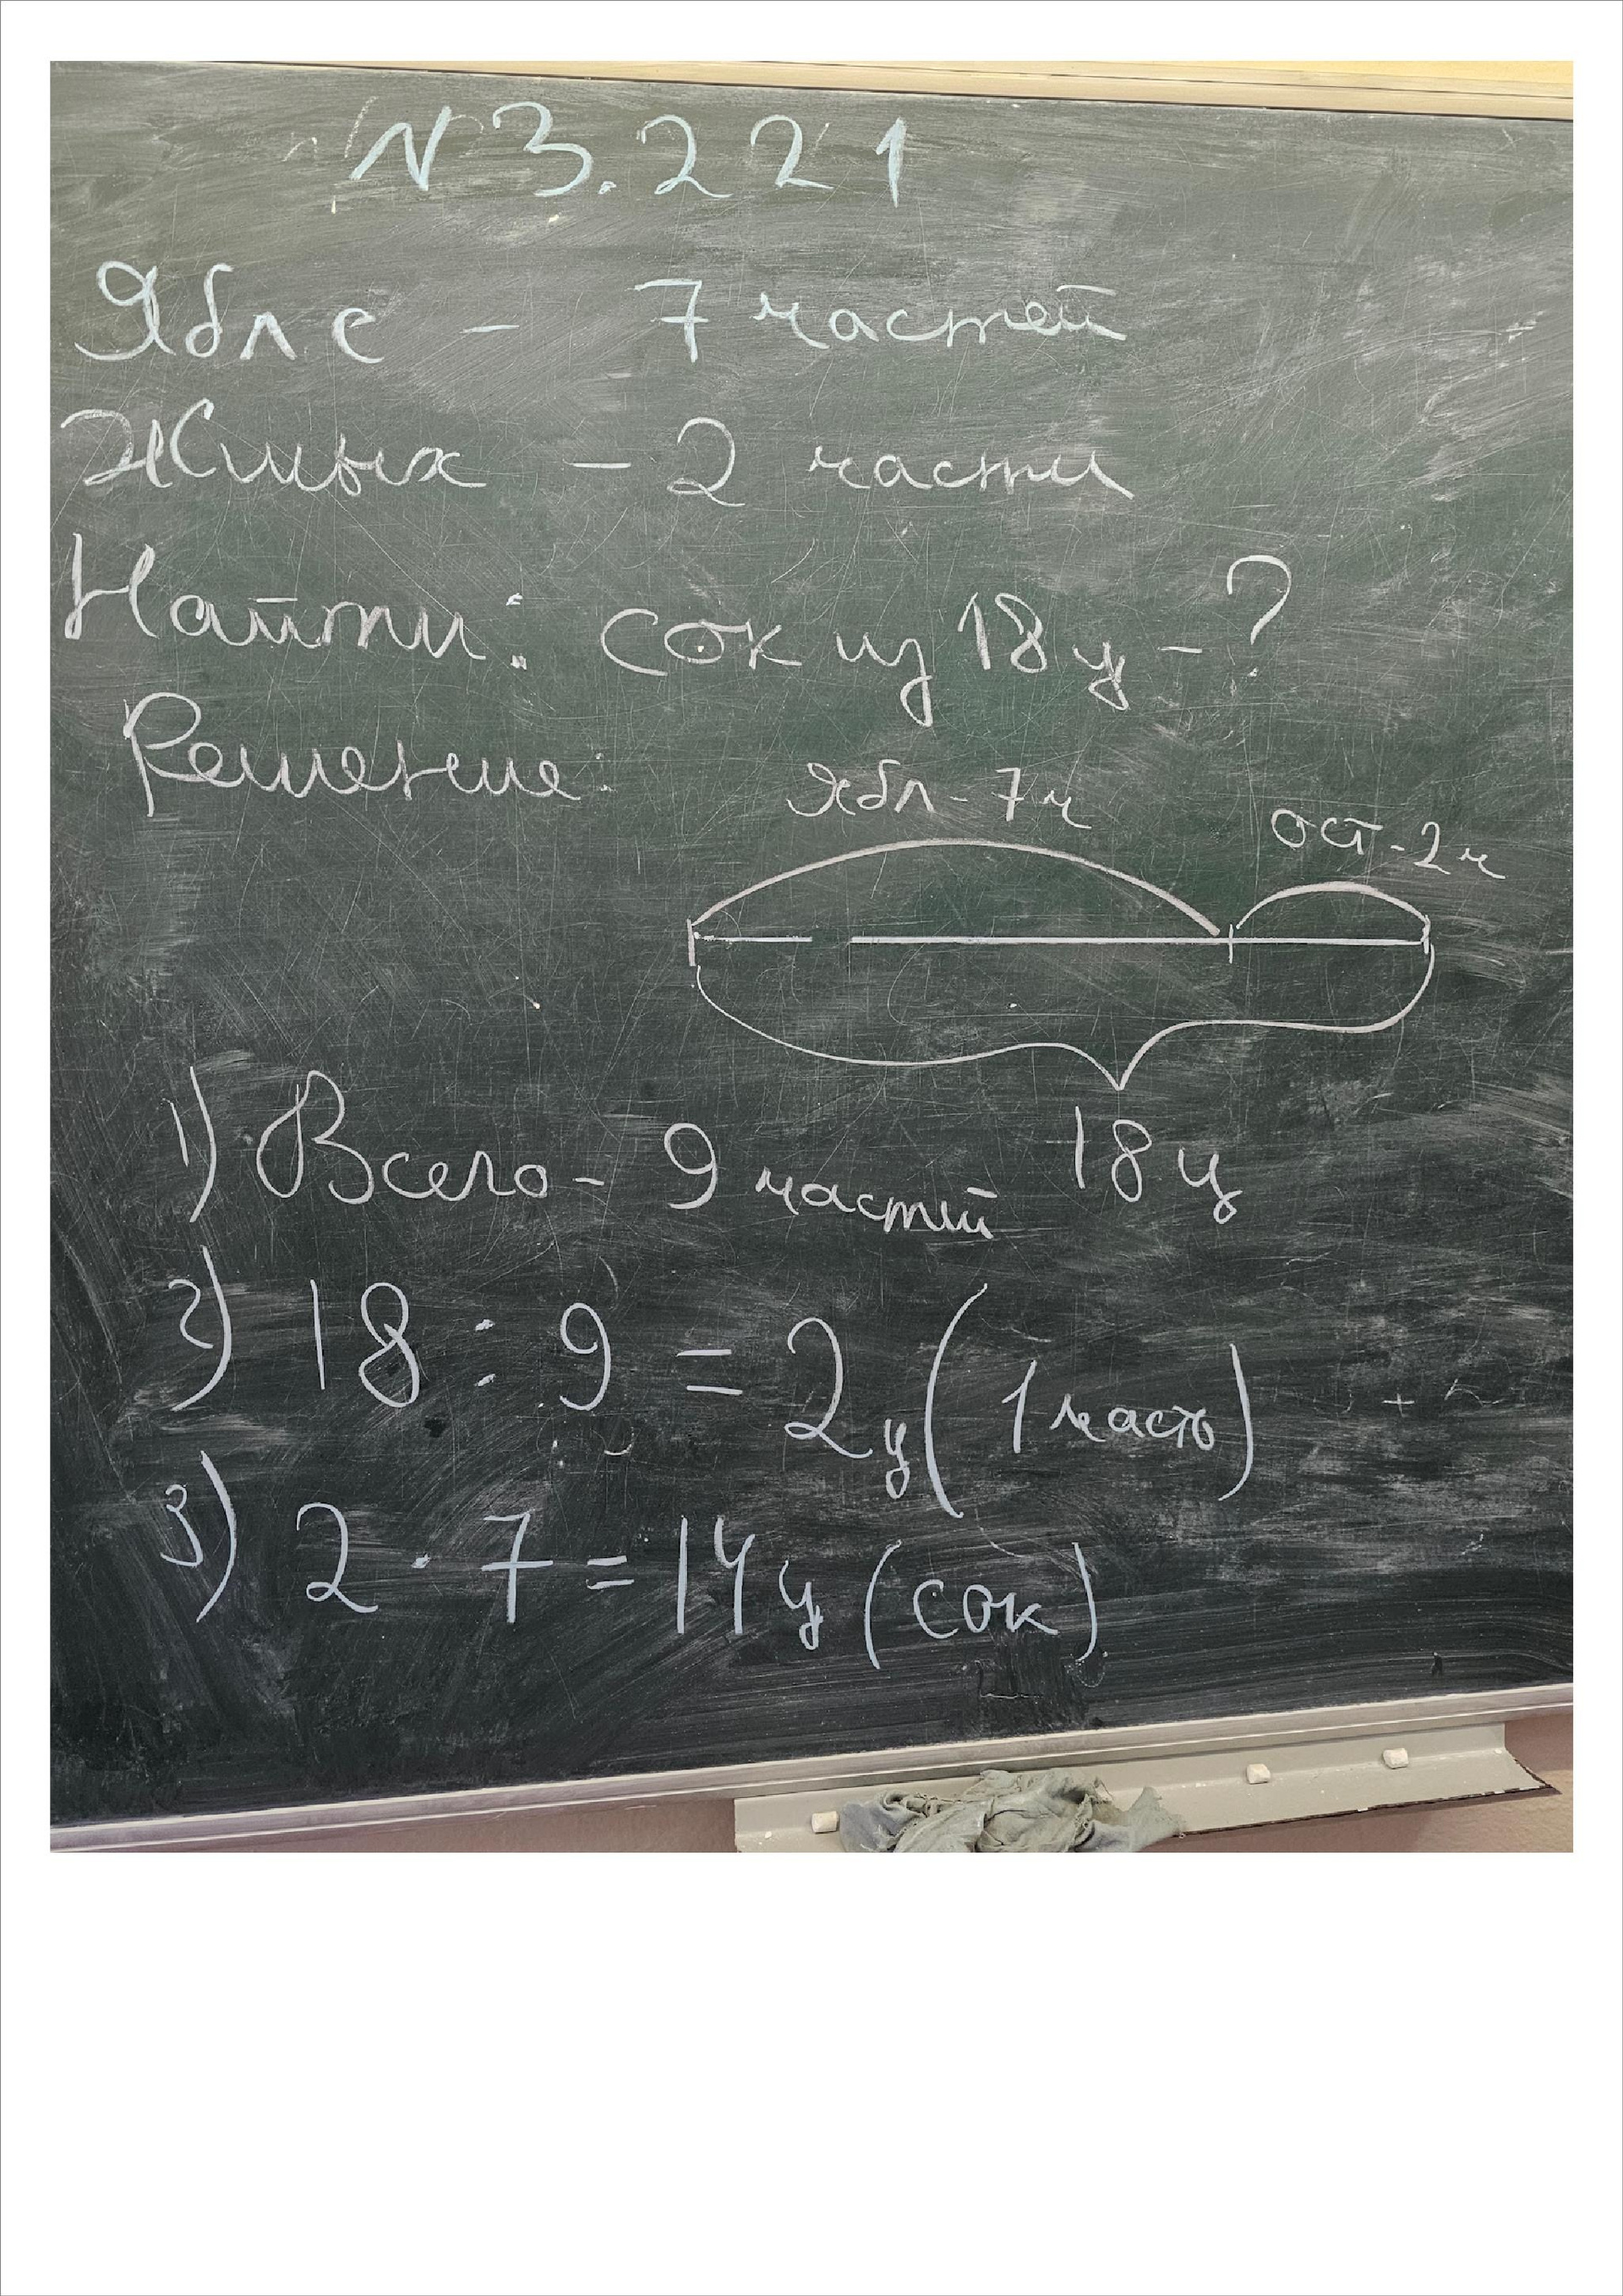 N 3.221
Ябл с - 7 частей
Жмых - 2 части
Найти: сок из 18 ц - ?
Решение.
Ябл - 7 ч
ост - 2 ч
18 ц
1) Всего - 9 частей
2) 18 : 9 = 2 ц (1 часть)
3) 2 · 7 = 14 ц (сок)